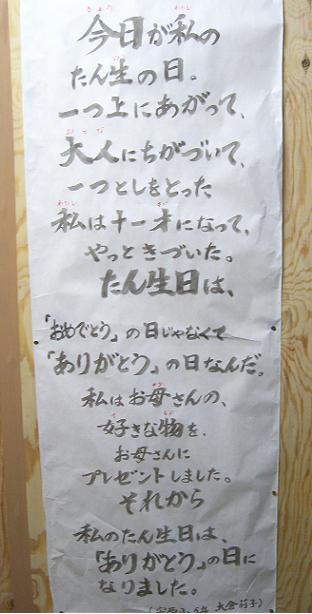 今日が私の
たん生の日。
一つ上にあがって、
大人にちがづいて、
一つとしをとった
私は十一才になって、
やっときづいた。
たん生日は、
「おめでとう」の日じゃなくて
「ありがとう」の日なんだ。
私はお母さんの、
好きな物を、
お母さんに
プレゼントしました。
それから
私のたん生日は、
「ありがとう」の日に
なりました。